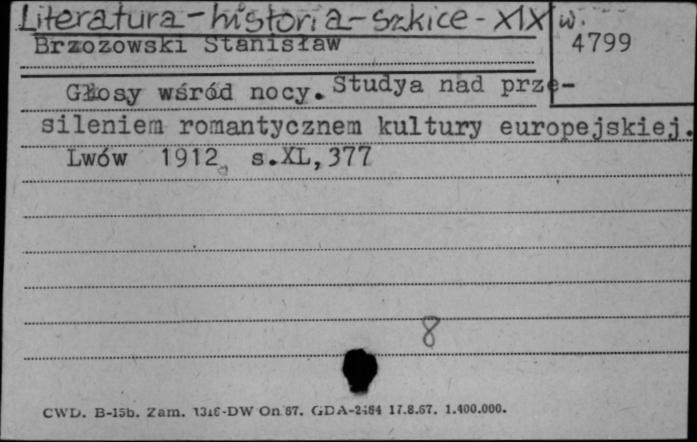 Literatura-historia-szkice-XIX w.
Brzozowski Stanisław
4799
Głosy wśród nocy. Studya nad prze-
sileniem romantycznem kultury europejskiej.
Lwów 1912 s.XL,377
8
CWD. B-15b. Zam. 1316-DW On 67. GDA-2484 17.8.67. 1.400.000.